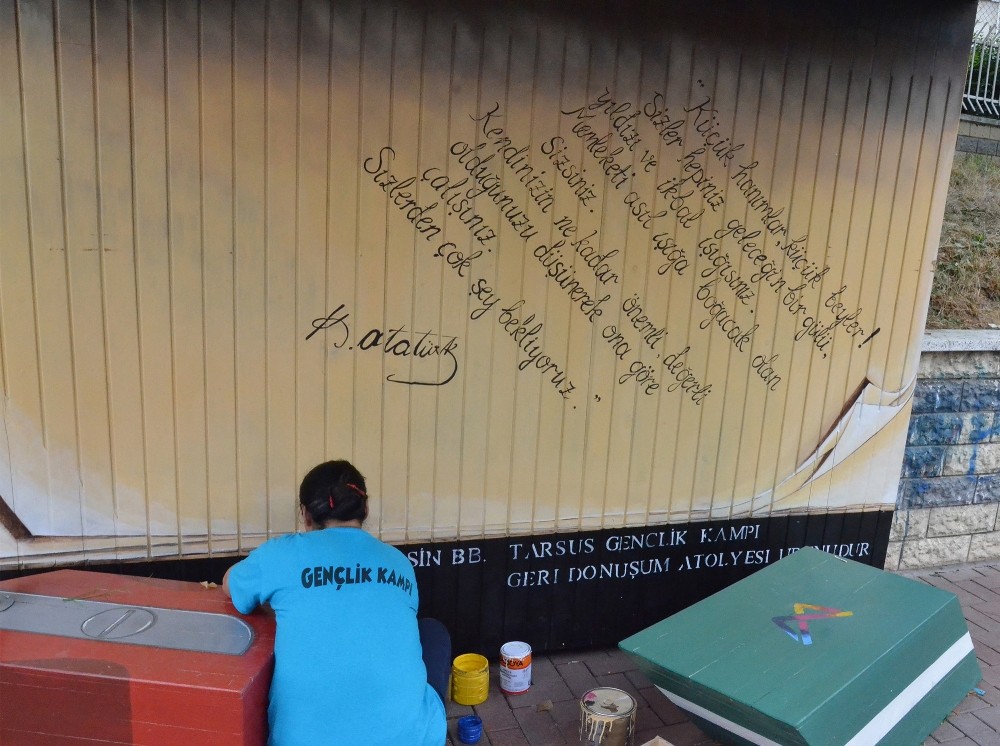 " Küçük hanımlar, küçük beyler!
Sizler hepiniz geleceğin bir gülü,
yıldızı ve ikbal ışığısınız.
Memleketi asıl ışığa boğacak olan
Sizsiniz.
Kendinizin ne kadar önemli, değerli
olduğunuzu düşünerek ona göre
çalışınız.
Sizlerden çok şey bekliyoruz. "
K. atatürk
SİN BB. TARSUS GENÇLİK KAMPI
GERİ DÖNÜŞÜM ATOLYESİ ÜRÜNÜDÜR
GENÇLİK KAMPI